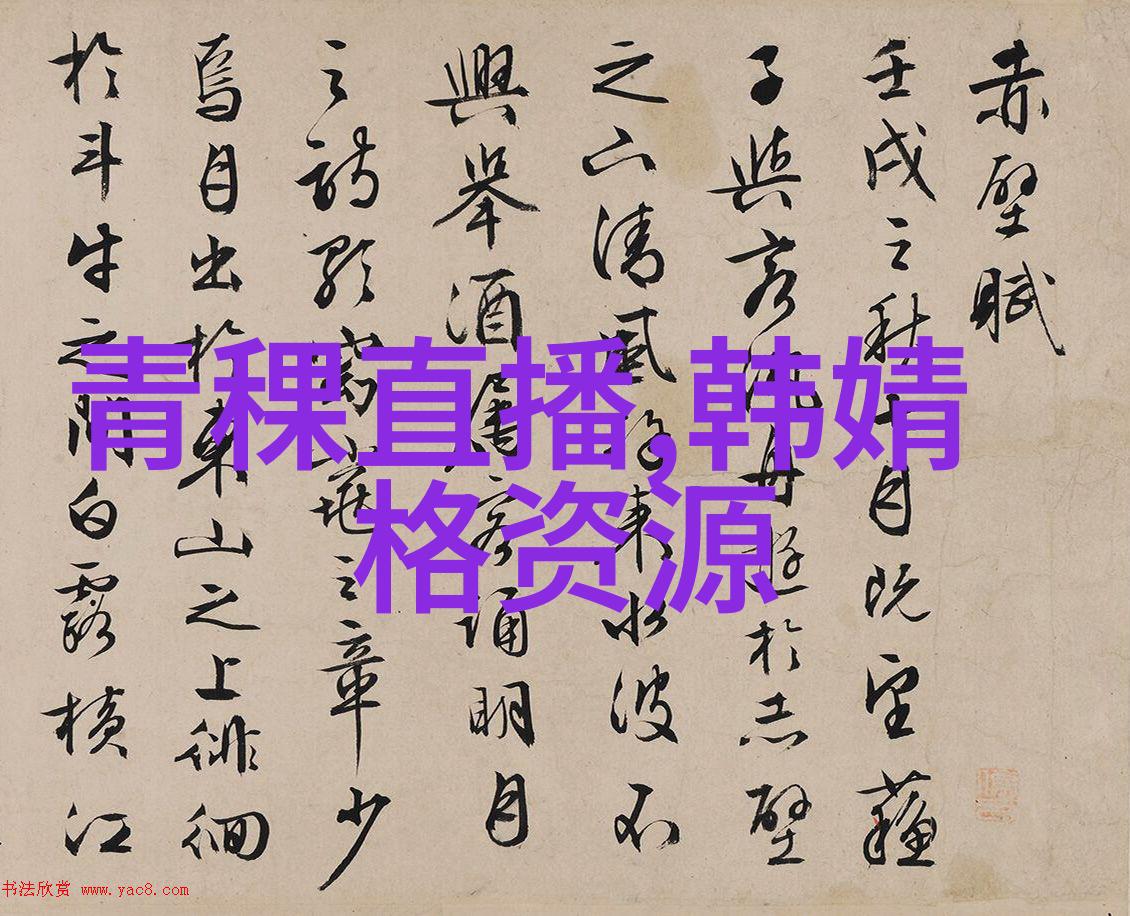 赤壁賦
壬戌之秋七月既望蘇
子與客泛舟遊於赤壁
之下清風徐來水波不
興舉酒屬客誦明月
之詩歌窈窕之章少
焉月出於東山之上徘徊
於斗牛之間白露橫江
青稞直播,韩婧
格资源
书法欣赏 www.yac8.com